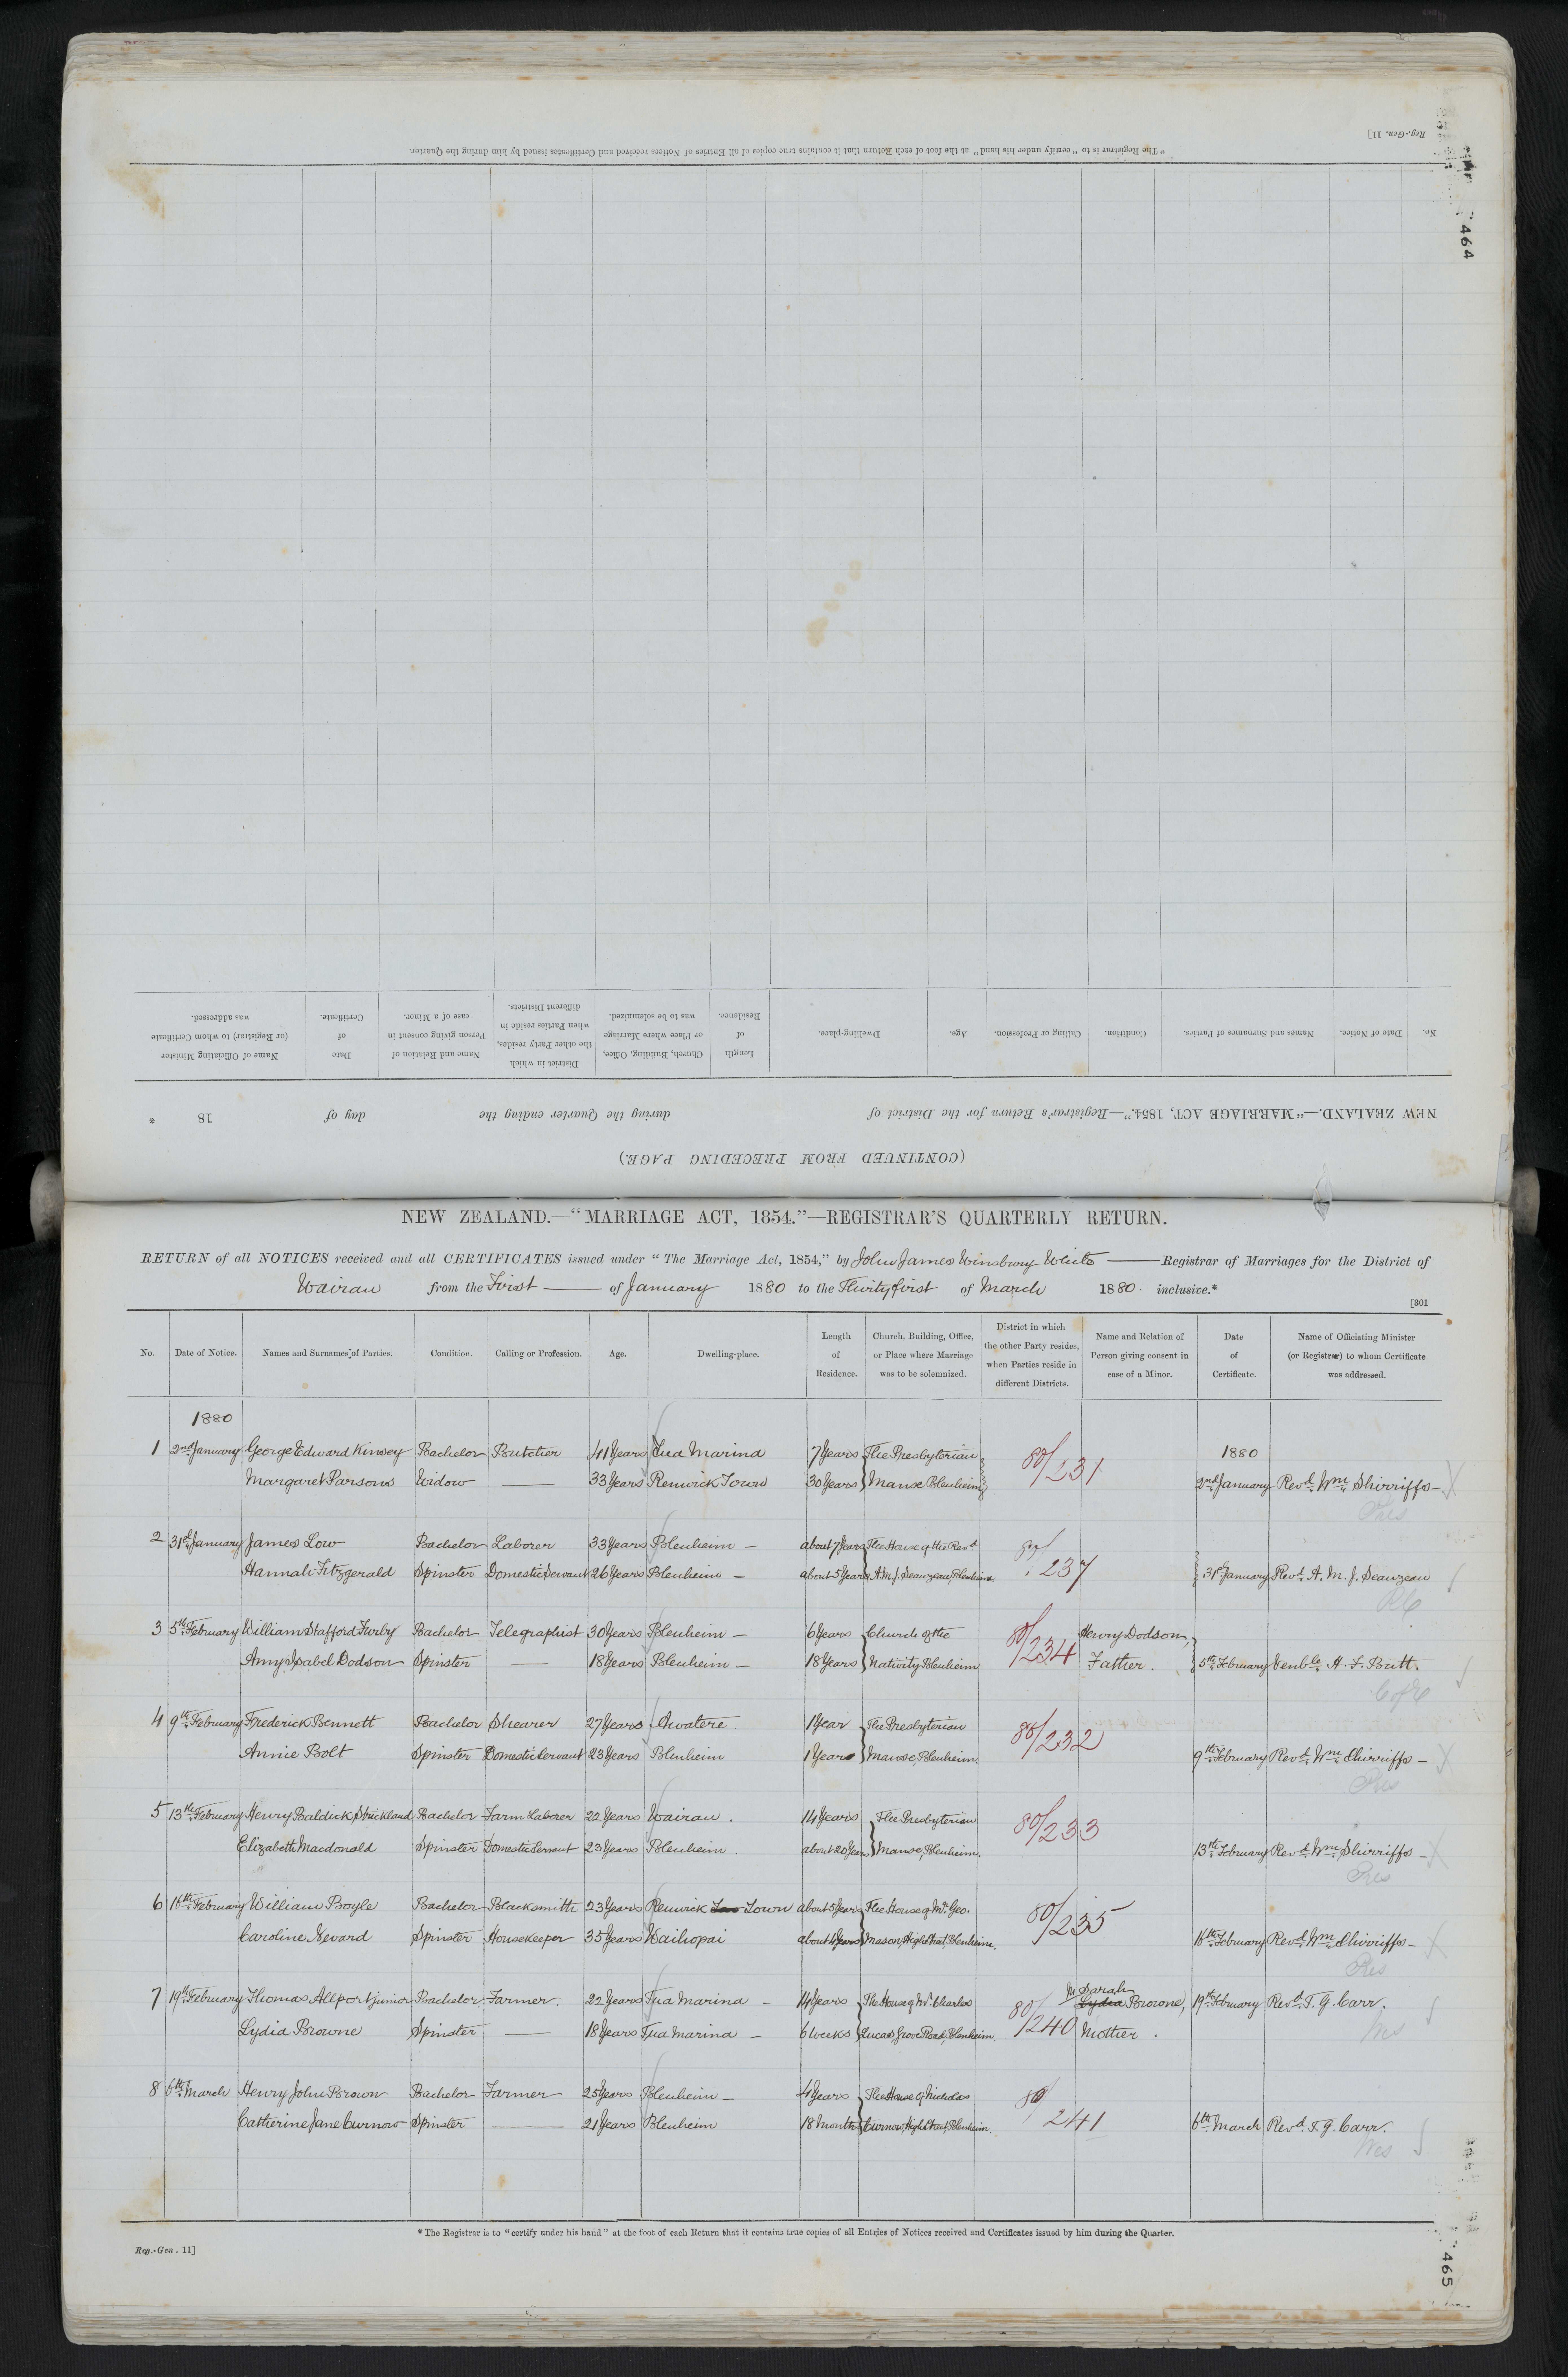 Reg.-Gen. 11]
* The Registrar is to "certify under his hand" at the foot of each Return that it contains true copies of all Entries of Notices received and Certificates issued by him during the Quarter.
464
No. Date of Notice. Names and Surnames of Parties. Condition. Calling or Profession. Age. Dwelling-place. Length of Residence. Church, Building, Office, or Place where Marriage was to be solemnized. District in which the other Party resides, when Parties reside in different Districts. Name and Relation of Person giving consent in case of a Minor. Date of Certificate. Name of Officiating Minister (or Registrar) to whom Certificate was addressed.
NEW ZEALAND.—"MARRIAGE ACT, 1854."—Registrar's Return for the District of during the Quarter ending the day of 18 *
(CONTINUED FROM PRECEDING PAGE.)
NEW ZEALAND.—"MARRIAGE ACT, 1854."—REGISTRAR'S QUARTERLY RETURN.
RETURN of all NOTICES received and all CERTIFICATES issued under "The Marriage Act, 1854," by John James Winsbury White Registrar of Marriages for the District of
Wairau from the First of January 1880 to the Thirty first of March 1880 inclusive.*
[301
No. Date of Notice. Names and Surnames of Parties. Condition. Calling or Profession. Age. Dwelling-place. Length of Residence. Church, Building, Office, or Place where Marriage was to be solemnized. District in which the other Party resides, when Parties reside in different Districts. Name and Relation of Person giving consent in case of a Minor. Date of Certificate. Name of Officiating Minister (or Registrar) to whom Certificate was addressed.
1880
1 2nd January George Edward Kinsey Bachelor Butcher 41 Years Tua Marina 7 Years The Presbyterian 80/231 1880
Margaret Parsons Widow — 33 Years Renwick Town 30 Years Manse Blenheim 2nd January Revd. Wm. Shirriffs
Pres
2 31st January James Low Bachelor Laborer 33 Years Blenheim — about 7 Years The House of the Revd 80/237
Hannah Fitzgerald Spinster Domestic Servant 26 Years Blenheim — about 5 Years A. M. J. Seauzeau, Blenheim 31st January Revd. A. M. J. Seauzeau
RC
3 5th February William Stafford Furby Bachelor Telegraphist 30 Years Blenheim — 6 Years Church of the 80/234 Henry Dodson,
Amy Isabel Dodson Spinster — 18 Years Blenheim — 18 Years Nativity Blenheim Father. 5th February Venble. H. F. Butt.
C of E
4 9th February Frederick Bennett Bachelor Shearer 27 Years Awatere. 1 Year The Presbyterian 80/232
Annie Bolt Spinster Domestic Servant 23 Years Blenheim 1 Year Manse, Blenheim. 9th February Revd. Wm. Shirriffs —
Pres
5 13th February Henry Baldick Strickland Bachelor Farm Laborer 22 Years Wairau. 14 Years The Presbyterian 80/233
Elizabeth Macdonald Spinster Domestic Servant 23 Years Blenheim. about 20 Years Manse, Blenheim. 13th February Revd. Wm. Shirriffs —
Pres
6 16th February William Boyle Bachelor Blacksmith 23 Years Renwick Town about 5 Years The House of Mr. Geo. 80/235
Caroline Nevard Spinster Housekeeper 35 Years Waihopai about 4 Years Mason, High Street, Blenheim. 16th February Revd. Wm. Shirriffs —
Pres
7 19th February Thomas Allport junior Bachelor Farmer. 22 Years Tua Marina — 14 Years The House of Mr. Charles 80/240 Sarah Lydia Browne, 19th February Revd. T. G. Carr.
Lydia Browne Spinster — 18 Years Tua Marina — 6 weeks Lucas, Grove Road, Blenheim. Mother.
Wes
8 6th March Henry John Brown Bachelor Farmer 25 Years Blenheim — 4 Years The House of Nicholas 80/241
Catherine Jane Curnow Spinster — 21 Years Blenheim 18 Months Curnow, High Street, Blenheim. 6th March Revd. T. G. Carr.
Wes
* The Registrar is to "certify under his hand" at the foot of each Return that it contains true copies of all Entries of Notices received and Certificates issued by him during the Quarter.
Reg.-Gen. 11]
465